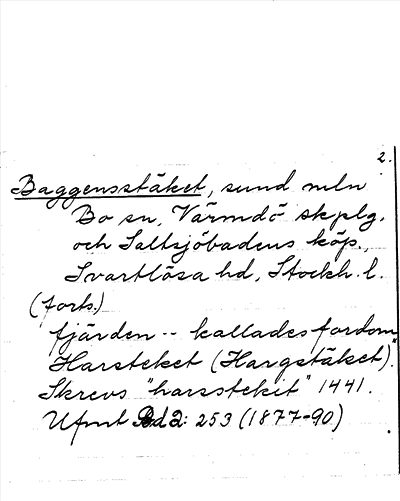 2.
Baggensstäket, sund mln
Bo sn, Värmdö skplg.
och Saltsjöbadens köp.,
Svartlösa hd, Stockh. l.
(forts.)
fjärden -- kallades fordom
Harsteket (Hargstäket)."
Skrevs "harsstekit" 1441.
Ufmt Bd 2: 253 (1877-90)